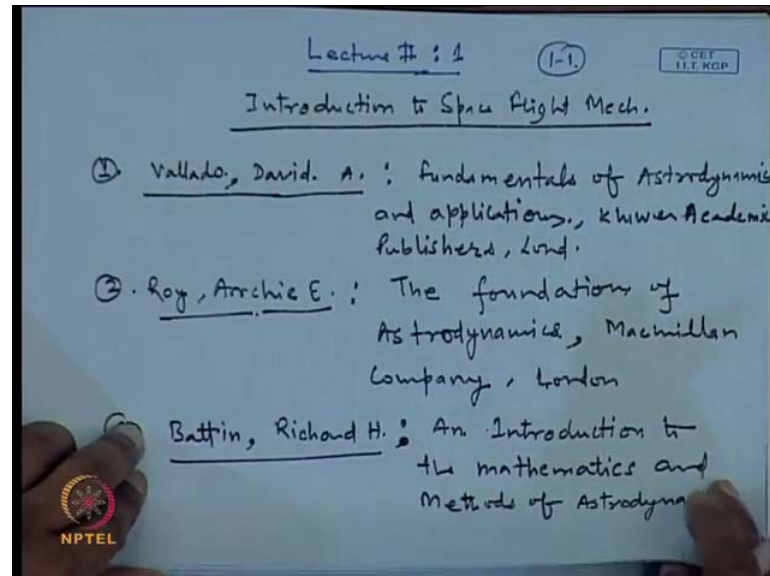 Lecture #: 1
1-1.
© CET
I.I.T. KGP
Introduction to Space Flight Mech.
① Vallado, David. A. : Fundamentals of Astrodynamic
and applications., Kluwer Academic
Publishers, Lond.
②. Roy, Archie E. : The foundation of
Astrodynamics, Macmillan
Company, London
Battin, Richard H. : An Introduction to
the mathematics and
Methods of Astrodyna
NPTEL